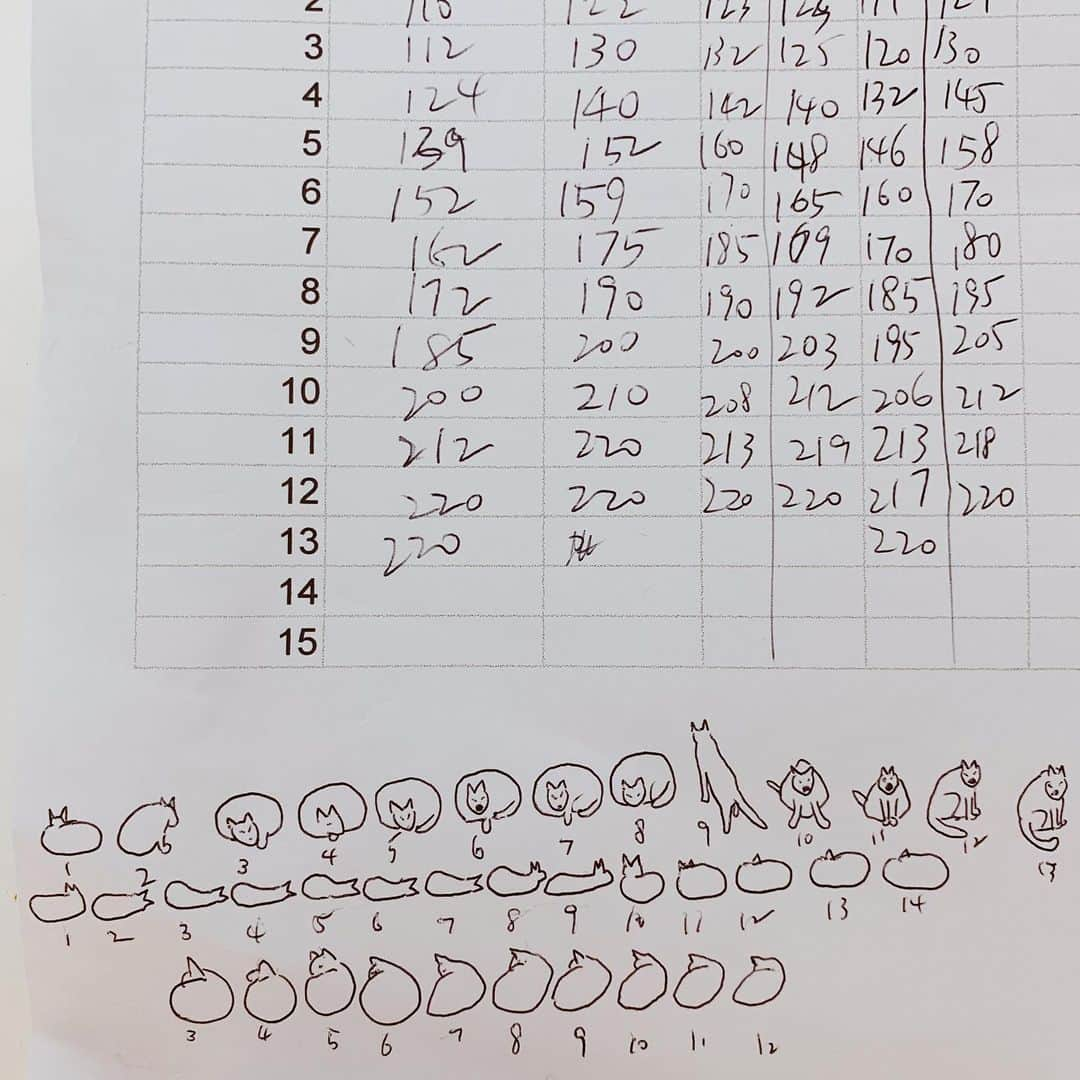 2 110 122 123
3 112 130 132 125 120 130
4 124 140 142 140 132 145
5 139 152 160 148 146 158
6 152 159 170 165 160 170
7 162 175 185 169 170 180
8 172 190 190 192 185 195
9 185 200 200 203 195 205
10 200 210 208 212 206 212
11 212 220 213 219 213 218
12 220 220 220 220 217 220
13 220 220
14
15
1 2 3 4 5 6 7 8 9 10 11 12 13
1 2 3 4 5 6 7 8 9 10 11 12 13 14
3 4 5 6 7 8 9 10 11 12